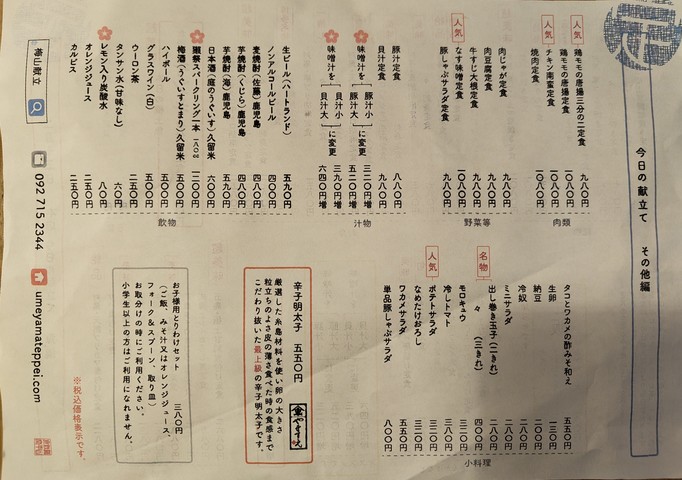 今日の献立て その他編
肉類
鶏モモの唐揚三分の二定食 九八〇円
人気
鶏モモの唐揚定食 一〇八〇円
人気
チキン南蛮定食 一〇八〇円
焼肉定食 一〇八〇円
野菜等
肉じゃが定食 九八〇円
肉豆腐定食 九八〇円
牛すじ大根定食 九八〇円
人気
なす味噌定食 一〇八〇円
豚しゃぶサラダ定食 九八〇円
汁物
豚汁定食 八八〇円
貝汁定食 九八〇円
味噌汁を 豚汁小 に変更 三九〇円増
豚汁大 五二〇円増
味噌汁を 貝汁小 に変更 三九〇円増
貝汁大 六四〇円増
飲物
生ビール(ハートランド) 五九〇円
ノンアルコールビール 四八〇円
麦焼酎(佐藤)鹿児島 四八〇円
芋焼酎(くじら)鹿児島 四八〇円
芋焼酎(海)鹿児島 五九〇円
日本酒(庭のうぐいす)久留米 六〇〇円
獺祭スパークリング一本 一八〇cc 一二〇〇円
梅酒(うぐいすとまり)久留米 五五〇円
ハイボール 五〇〇円
グラスワイン(白) 五〇〇円
ウーロン茶 二五〇円
タンサン水(甘味なし) 六〇円
レモン入り炭酸水 八〇円
オレンジジュース 二五〇円
カルピス 二五〇円
小料理
タコとワカメの酢みそ和え 五五〇円
生卵 一三〇円
納豆 一一〇円
冷奴 二八〇円
ミニサラダ 二八〇円
名物
出し巻き玉子(二きれ) 二八〇円
々 (三きれ) 四〇〇円
モロキュウ 三三〇円
冷しトマト 三八〇円
人気
ポテトサラダ 三二〇円
なめたけおろし 二二〇円
ワカメサラダ 五五〇円
単品豚しゃぶサラダ 八〇〇円
辛子明太子 五五〇円
厳選した糸島材料を使い卵の大きさ
粒立ちのよさ皮の薄さ食べた時の食感まで
こだわり抜いた最上級の辛子明太子です。
お子様用とりわけセット 三八〇円
(ご飯、みそ汁又はオレンジジュース、
フォーク&スプーン、取り皿)
お取分けの時にご利用ください。
小学生以上の方はご利用になれません。
※税込価格表示です。
梅山献立
092 715 2344
umeyamateppei.com